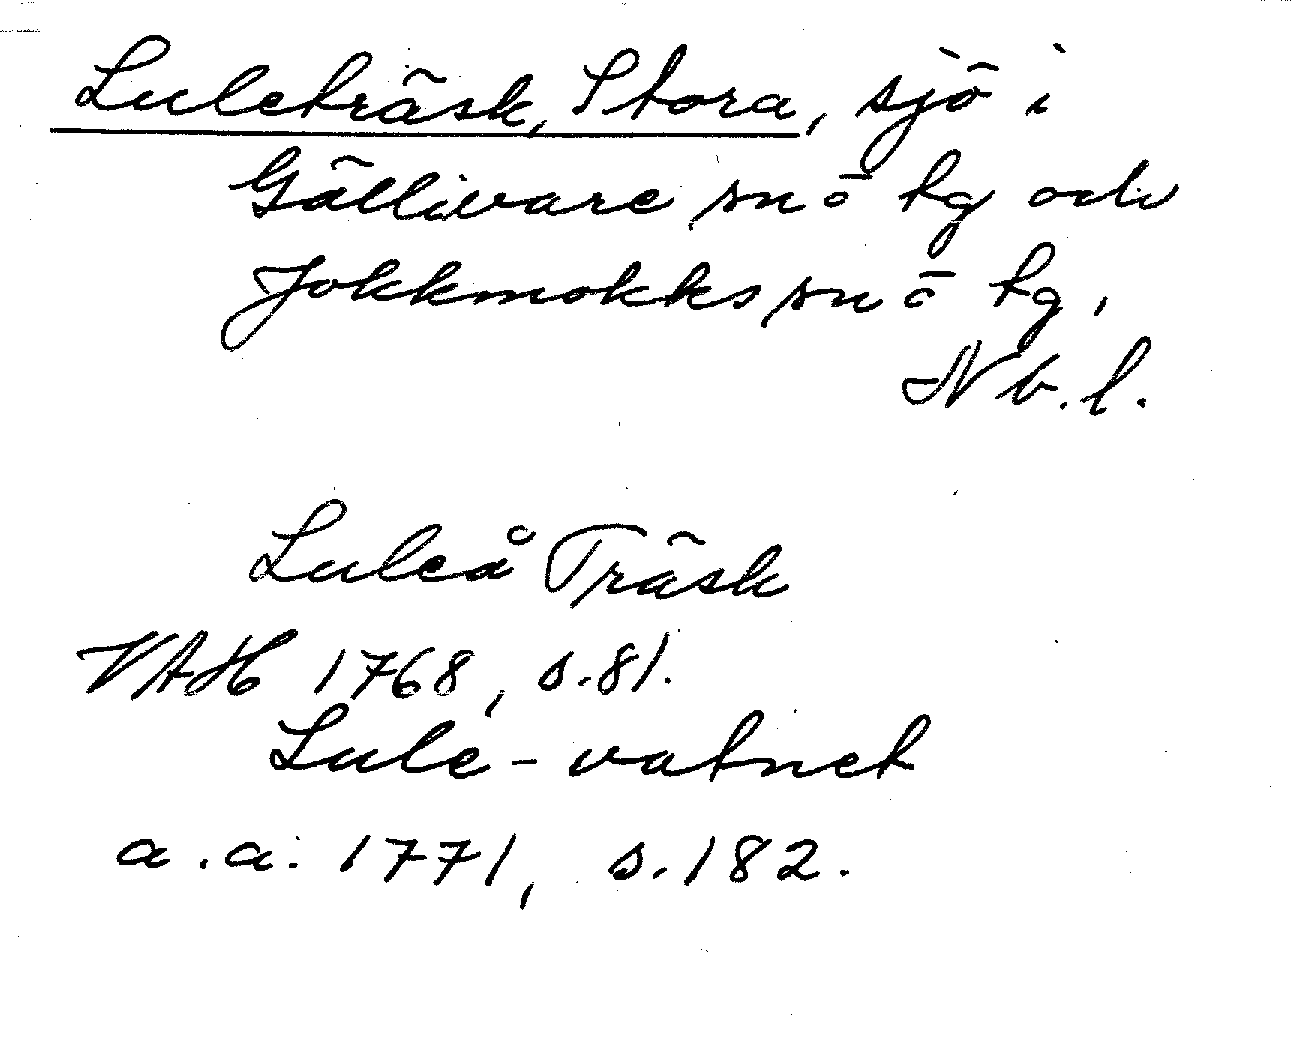 Luleträsk, Stora, sjö i
Gällivare sn o tg och
Jokkmokks sn o tg,
Nb.l.
Luleå Träsk
VAH 1768, s.81.
Lule-vatnet
a.a. 1771, s.182.